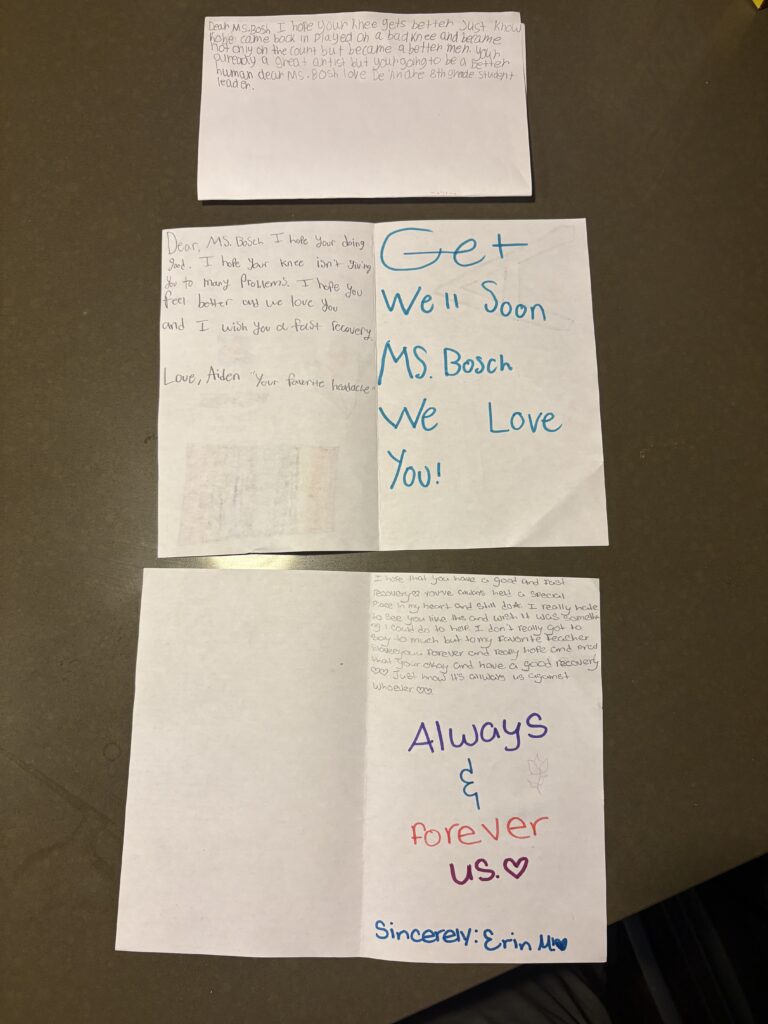 Dear MS.Bosh I hope your knee gets better Just know
Kobe came back in played on a bad knee and became
not only on the count but became a better men. your
already a great artist but your going to be a better
human dear MS.Bosh love De'Andre 8th grade student
leader.
Dear, MS. Bosch I hope your doing
good. I hope your knee isn't giving
you to many problems. I hope you
feel better all we love you
and I wish you a fast recovery.
Love, Aiden "Your favorite headache"
Get
Well Soon
MS. Bosch
We Love
You!
I hope that you have a good and fast
recovery♡ you've always held a special
place in my heart and still do. I really hate
to see you like this and wish it was someth
ing I could do to help. I don't really got to
say to much but to my favorite teacher
I love you forever and really hope and pray
that your okay and have a good recovery
♡♡. Just know its allways us against
whoever ♡♡
Always
&
forever
us.♡
Sincerely: Erin M!♥